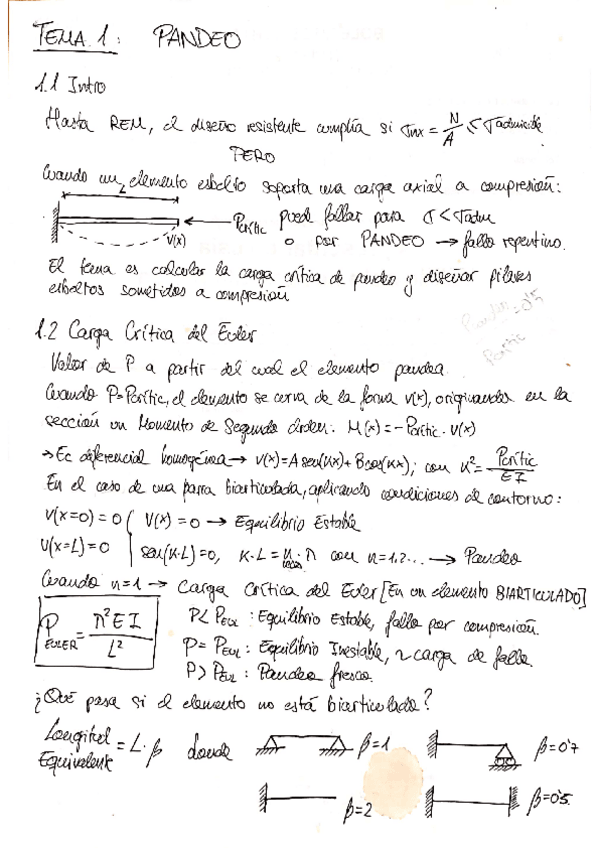 TEMA 1: PANDEO
1.1 Intro
Hasta REM, el diseño resistente cumplía si σmx = N/A ≤ σadmisible
PERO
Cuando un elemento esbelto soporta una carga axial a compresión:
L
Pcrític
V(x)
puede fallar para σ < σadm
o por PANDEO → fallo repentino.
El tema es calcular la carga crítica de pandeo y diseñar pilares
esbeltos sometidos a compresión
1.2 Carga Crítica del Euler
Valor de P a partir del cual el elemento pandea
Cuando P=Pcrític, el elemento se curva de la forma v(x), originando en la
sección un Momento de Segundo orden: M(x) = -Pcrític · v(x)
→ Ec diferencial homogénea → v(x) = A sen(kx) + B cos(kx); con k² = Pcrític/EI
En el caso de una barra biarticulada, aplicando condiciones de contorno:
V(x=0) = 0 V(x) = 0 → Equilibrio Estable
V(x=L) = 0 sen(K·L) = 0, K·L = n·π con n=1,2... → Pandeo
Cuando n=1 → Carga Crítica del Euler [En un elemento BIARTICULADO]
P EULER = π²EI/L²
P< PEUL : Equilibrio Estable, falla por compresión.
P= PEUL : Equilibrio Inestable, carga de fallo.
P> PEUL : Pandeo fresco.
¿Qué pasa si el elemento no está biarticulado?
Longitud Equivalente = L·β donde
β=1
β=0'7
β=2
β=0'5